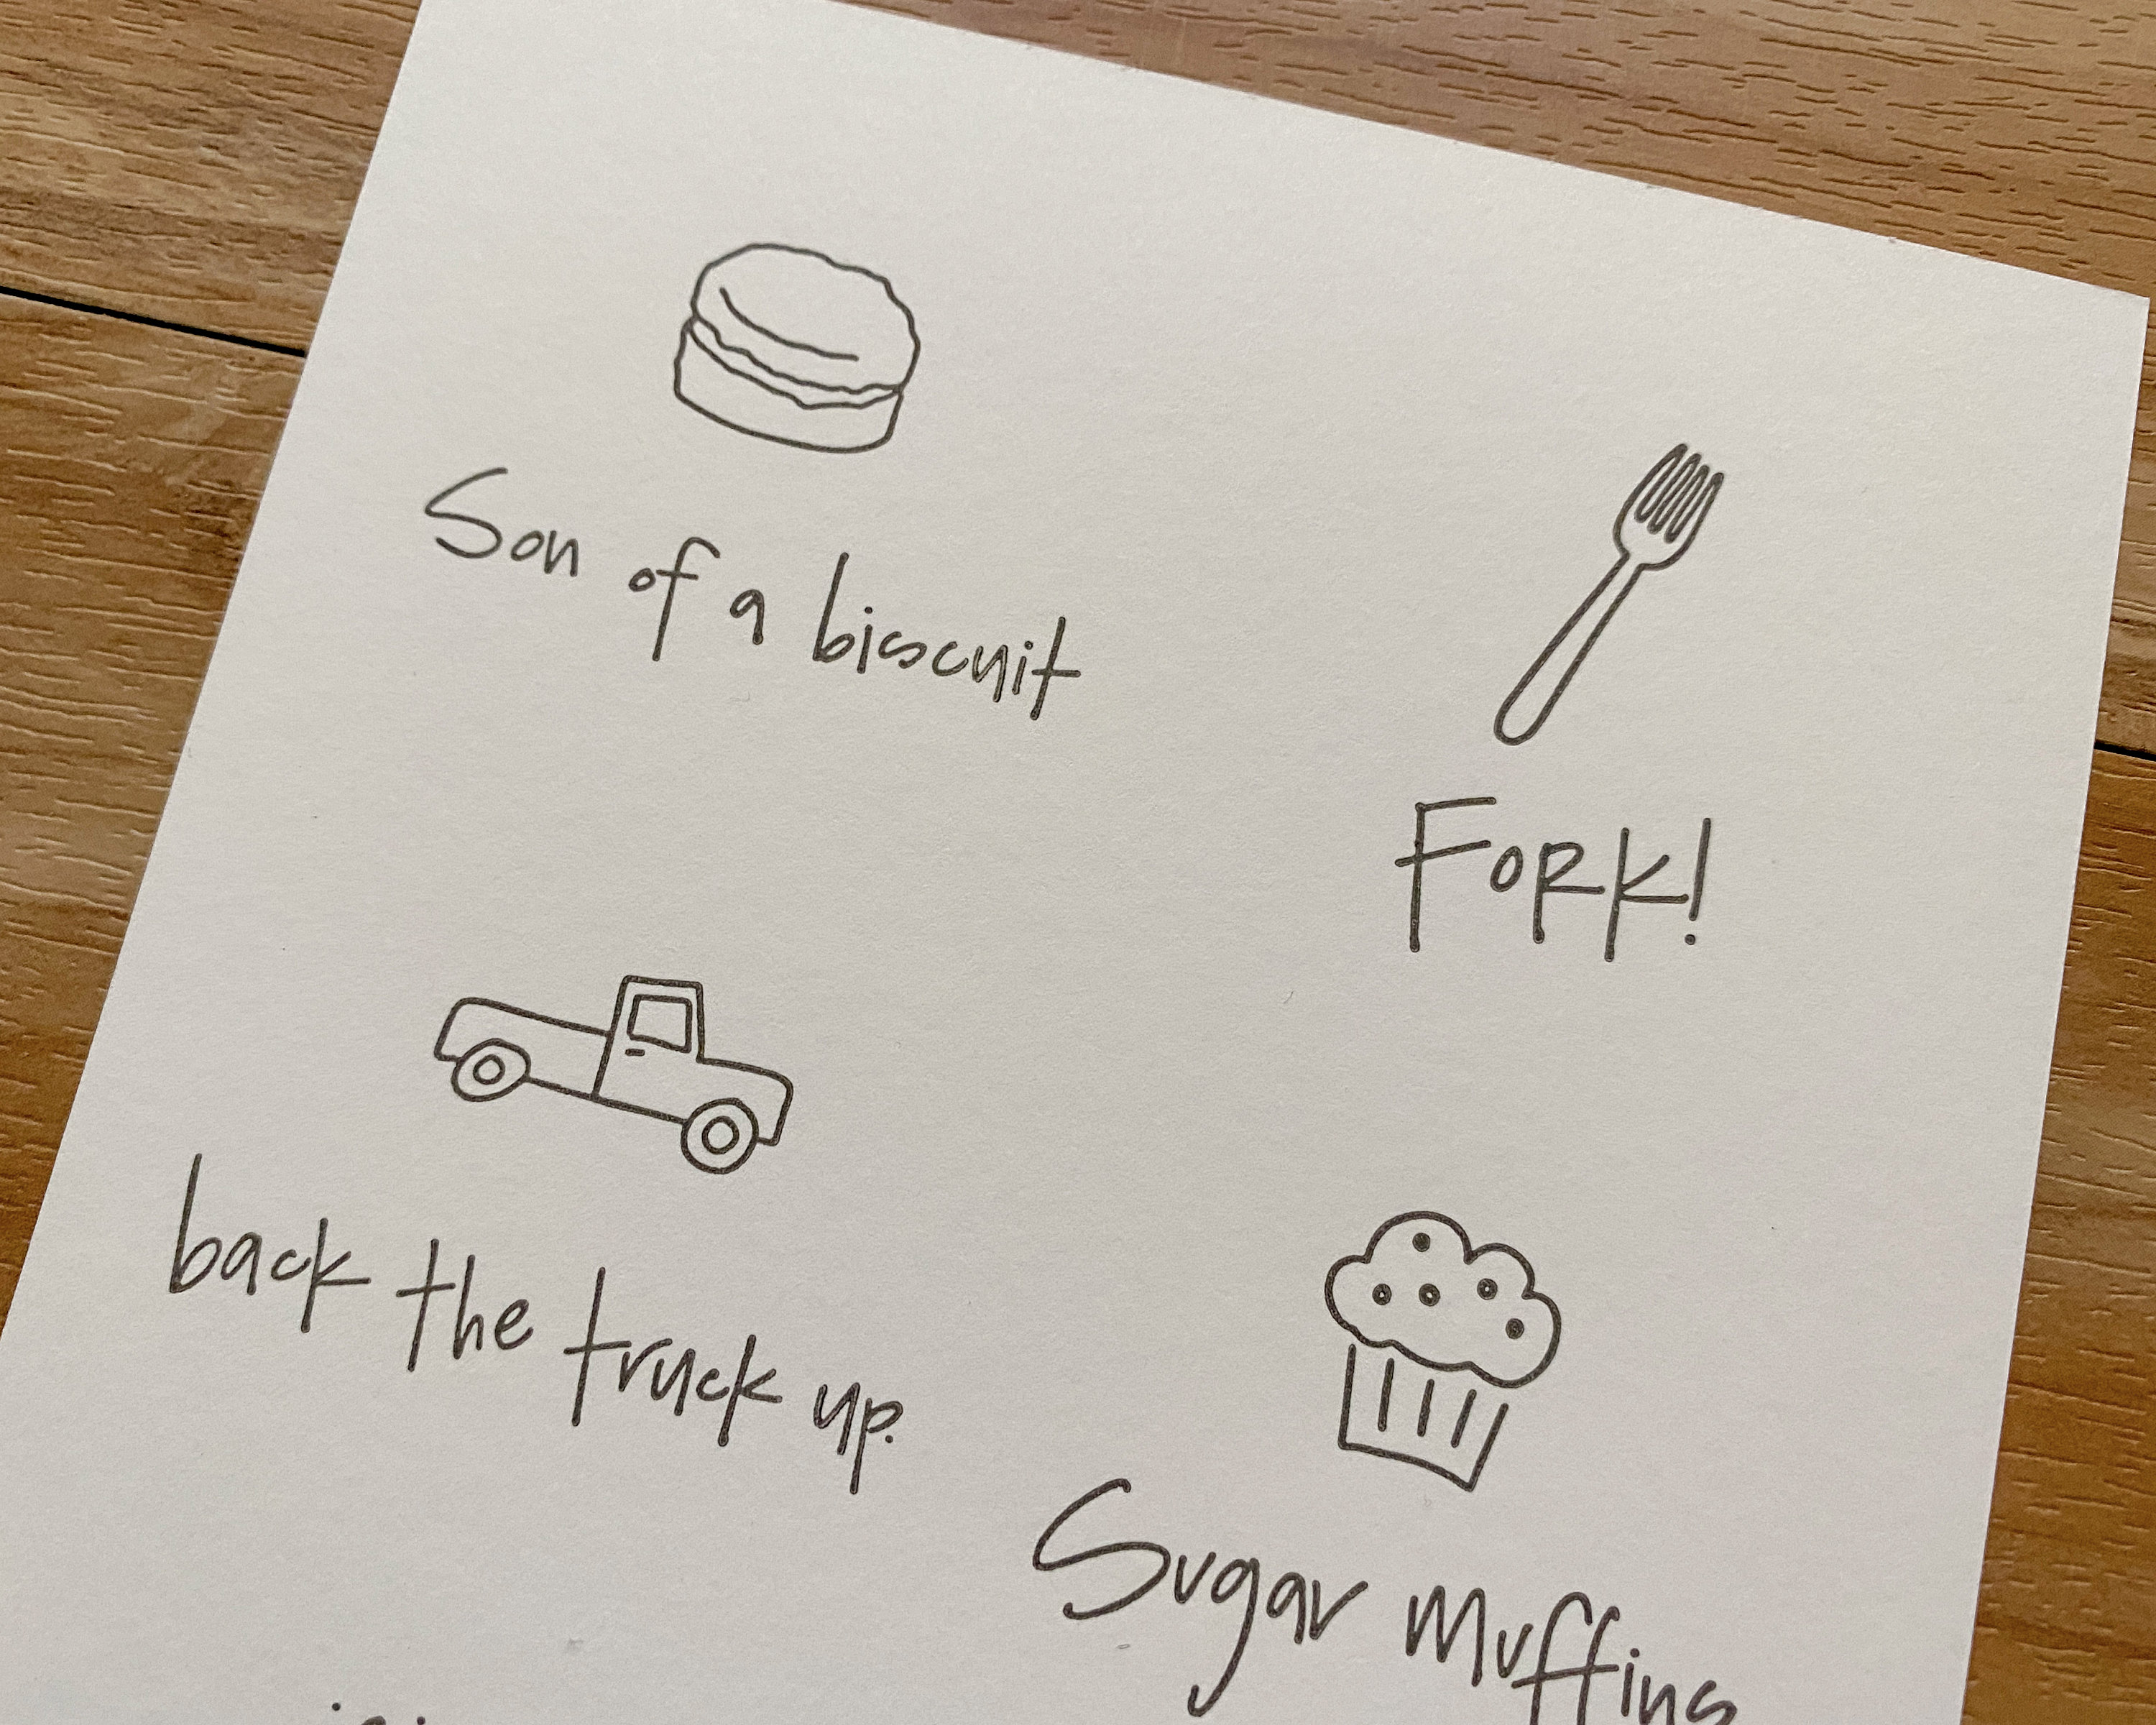 Son of a biscuit
FORK!
back the truck up.
Sugar Muffins